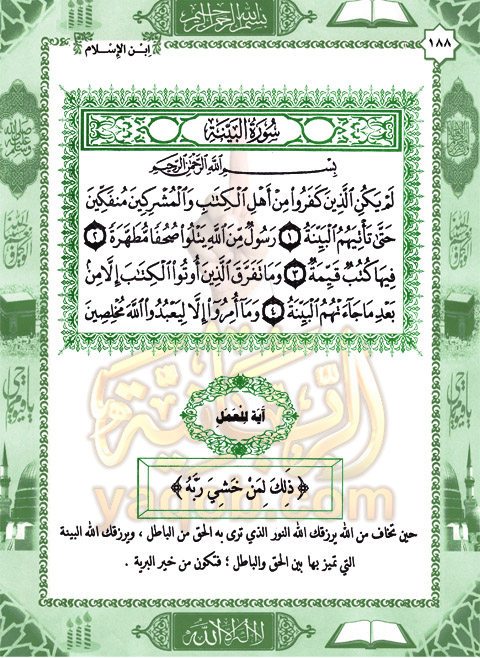 بسم الله الرحمن الرحيم
ابن الإسلام
١٨٨
سُورَةُ البَيِّنَةِ
بِسْمِ اللَّهِ الرَّحْمَٰنِ الرَّحِيمِ
لَمْ يَكُنِ الَّذِينَ كَفَرُوا مِنْ أَهْلِ الْكِتَابِ وَالْمُشْرِكِينَ مُنفَكِّينَ
حَتَّىٰ تَأْتِيَهُمُ الْبَيِّنَةُ ١ رَسُولٌ مِّنَ اللَّهِ يَتْلُوا صُحُفًا مُّطَهَّرَةً ٢
فِيهَا كُتُبٌ قَيِّمَةٌ ٣ وَمَا تَفَرَّقَ الَّذِينَ أُوتُوا الْكِتَابَ إِلَّا مِن
بَعْدِ مَا جَاءَتْهُمُ الْبَيِّنَةُ ٤ وَمَا أُمِرُوا إِلَّا لِيَعْبُدُوا اللَّهَ مُخْلِصِينَ
آية للعمل
﴿ ذَٰلِكَ لِمَنْ خَشِيَ رَبَّهُ ﴾
حين تخاف من الله يرزقك الله النور الذي ترى به الحق من الباطل ، ويرزقك الله البينة
التي تميز بها بين الحق والباطل ؛ فتكون من خير البرية .
لا إله إلا الله